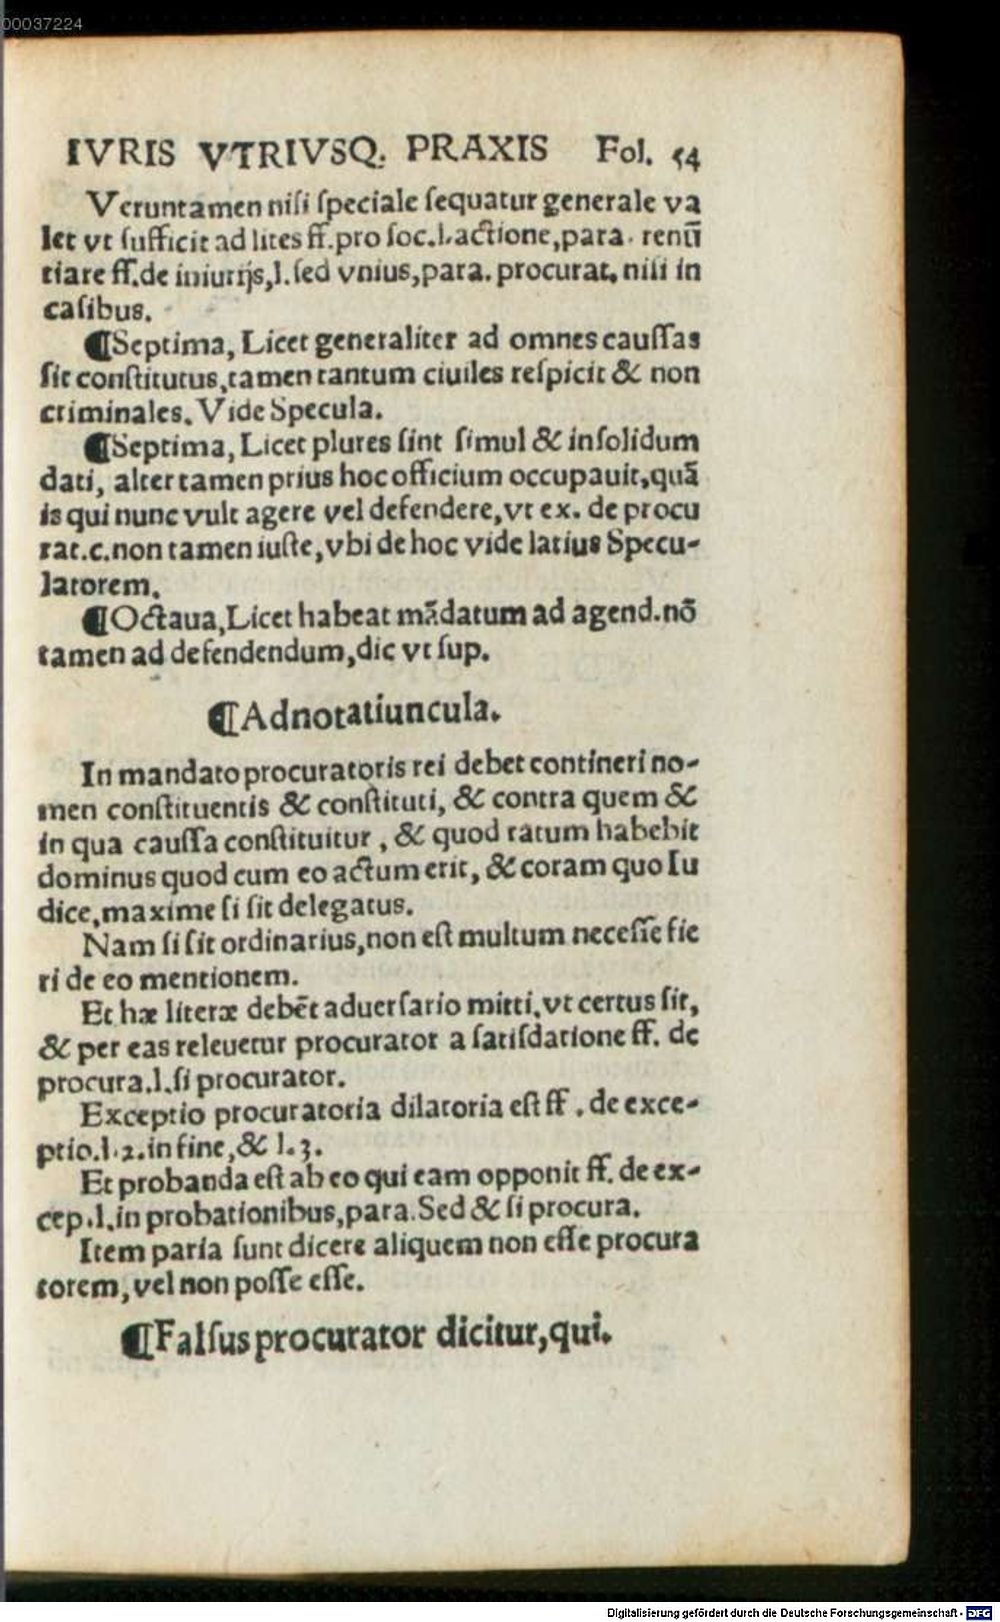 00037224
IVRIS VTRIVSQ. PRAXIS Fol. 54
Veruntamen niſi ſpeciale ſequatur generale va
let vt ſufficit ad lites ff. pro ſoc. l. actione, para. renũ
tiare ff. de iniurijs, l. ſed vnius, para. procurat. niſi in
caſibus.
¶Septima, Licet generaliter ad omnes cauſſas
ſit conſtitutus, tamen tantum ciuiles reſpicit & non
criminales. Vide Specula.
¶Septima, Licet plures ſint ſimul & inſolidum
dati, alter tamen prius hoc officium occupauit, quã
is qui nunc vult agere vel defendere, vt ex. de procu
rat. c. non tamen iuſte, vbi de hoc vide latius Specu-
latorem.
¶Octaua, Licet habeat mãdatum ad agend. nõ
tamen ad defendendum, dic vt ſup.
¶Adnotatiuncula.
In mandato procuratoris rei debet contineri no-
men conſtituentis & conſtituti, & contra quem &
in qua cauſſa conſtituitur, & quod ratum habebit
dominus quod cum eo actum erit, & coram quo Iu
dice, maxime ſi ſit delegatus.
Nam ſi ſit ordinarius, non eſt multum neceſſe fie
ri de eo mentionem.
Et hæ literæ debẽt aduerſario mitti. vt certus ſit,
& per eas releuetur procurator a ſatiſdatione ff. de
procura. l. ſi procurator.
Exceptio procuratoria dilatoria eſt ff. de exce-
ptio. l. 2. in fine, & l. 3.
Et probanda eſt ab eo qui eam opponit ff. de ex-
cep. l. in probationibus, para. Sed & ſi procura.
Item paria ſunt dicere aliquem non eſſe procura
torem, vel non poſſe eſſe.
¶Falſus procurator dicitur, qui.
Digitalisierung gefördert durch die Deutsche Forschungsgemeinschaft - DFG